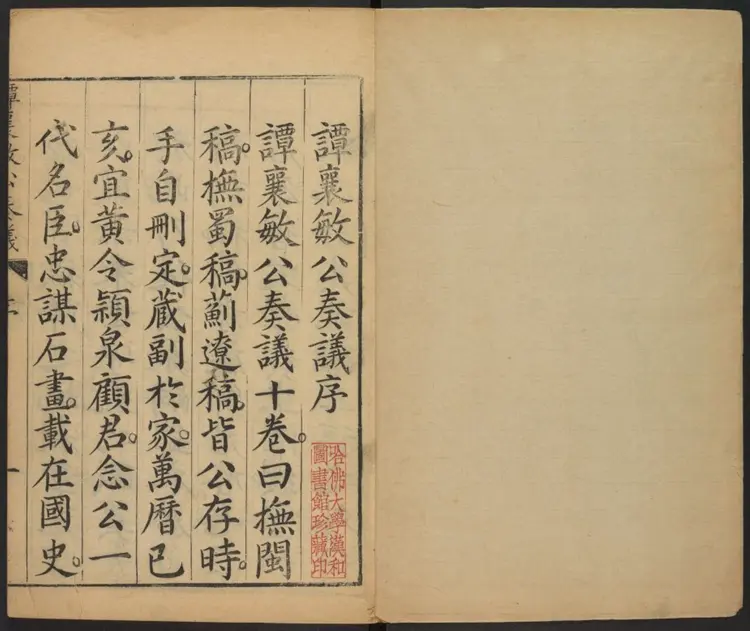 譚襄敏公奏議序
哈佛大學漢和
圖書館珍藏印
譚襄敏公奏議十卷。曰撫閩
稿。撫蜀稿。薊遼稿。皆公存時。
手自刪定。蔵副扵家。萬曆已
亥。宜黃令穎泉顧君。念公一
代名臣。忠謀石畫。載在國史。
譚襄敏公奏議
一